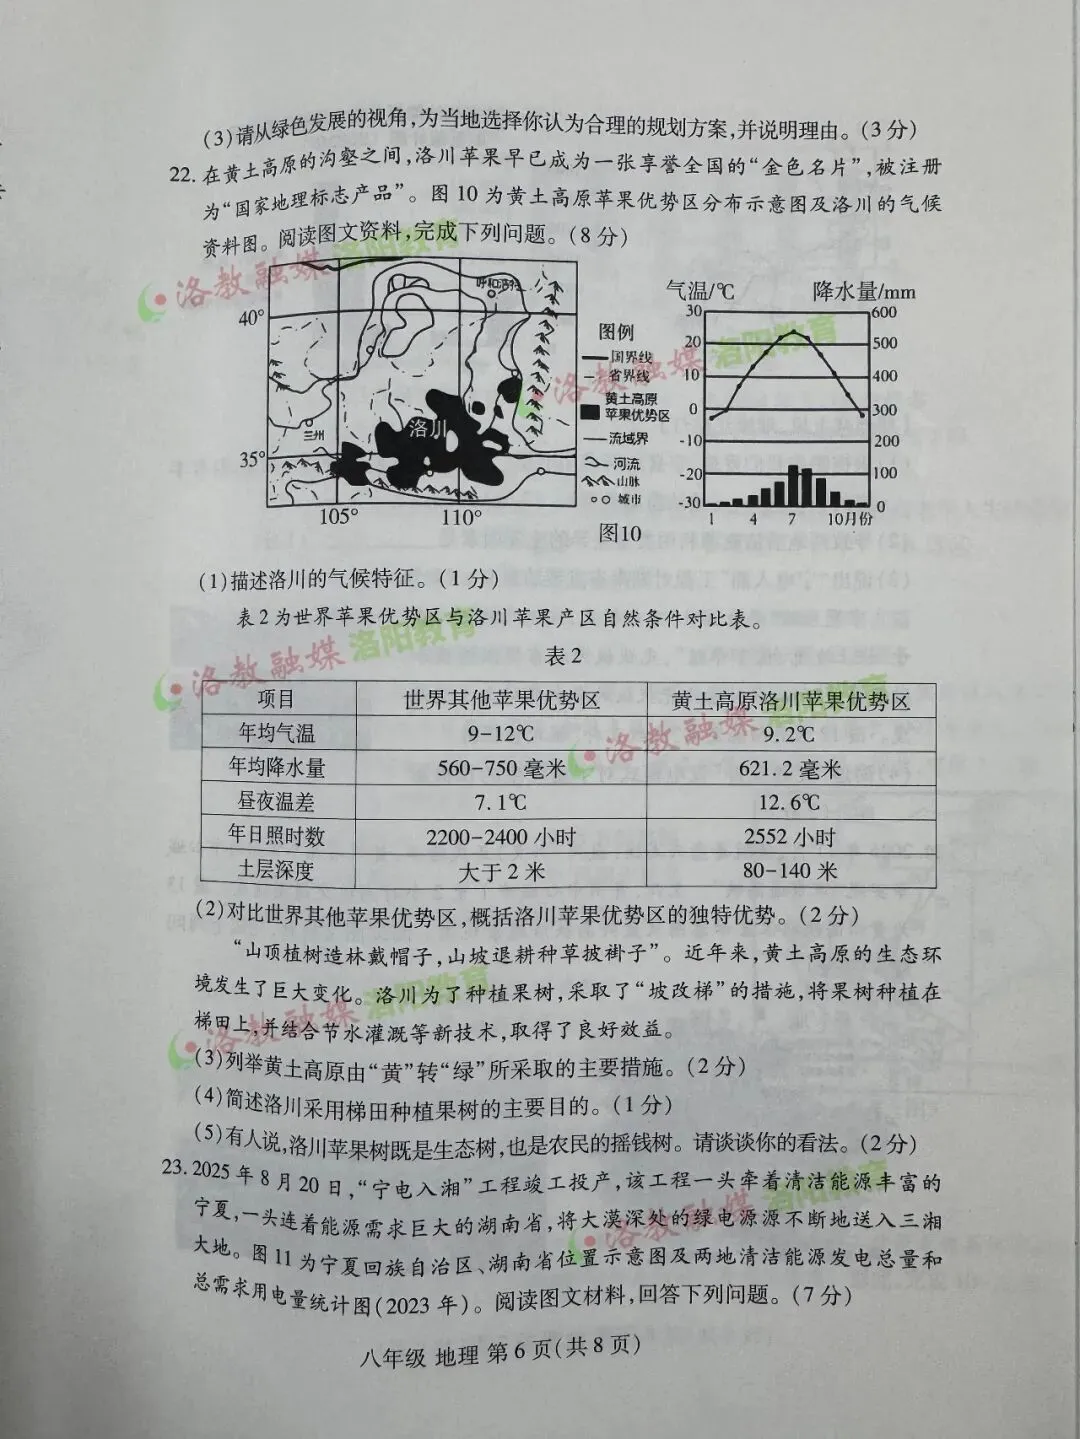 (3)请从绿色发展的视角,为当地选择你认为合理的规划方案,并说明理由。(3分)
22.在黄土高原的沟壑之间,洛川苹果早已成为一张享誉全国的“金色名片”,被注册
为“国家地理标志产品”。图10为黄土高原苹果优势区分布示意图及洛川的气候
资料图。阅读图文资料,完成下列问题。(8分)
洛教融媒 洛阳教育
呼和浩特
40°
兰州
洛川
35°
105° 110°
图例
国界线
省界线
黄土高原
苹果优势区
流域界
河流
山脉
城市
图10
气温/℃ 降水量/mm
30 600
20 500
10 400
0 300
-10 200
-20 100
-30 0
1 4 7 10月份
洛教融媒 洛阳教育
(1)描述洛川的气候特征。(1分)
表2为世界苹果优势区与洛川苹果产区自然条件对比表。
洛教融媒 洛阳教育
表2
项目 世界其他苹果优势区 黄土高原洛川苹果优势区
年均气温 9-12℃ 9.2℃
年均降水量 560-750毫米 621.2毫米
昼夜温差 7.1℃ 12.6℃
年日照时数 2200-2400小时 2552小时
土层深度 大于2米 80-140米
洛教融媒 洛阳教育
(2)对比世界其他苹果优势区,概括洛川苹果优势区的独特优势。(2分)
“山顶植树造林戴帽子,山坡退耕种草披褂子”。近年来,黄土高原的生态环
境发生了巨大变化。洛川为了种植果树,采取了“坡改梯”的措施,将果树种植在
梯田上,并结合节水灌溉等新技术,取得了良好效益。
洛教融媒 洛阳教育
(3)列举黄土高原由“黄”转“绿”所采取的主要措施。(2分)
(4)简述洛川采用梯田种植果树的主要目的。(1分)
(5)有人说,洛川苹果树既是生态树,也是农民的摇钱树。请谈谈你的看法。(2分)
23.2025年8月20日,“宁电入湘”工程竣工投产,该工程一头牵着清洁能源丰富的
宁夏,一头连着能源需求巨大的湖南省,将大漠深处的绿电源源不断地送入三湘
大地。图11为宁夏回族自治区、湖南省位置示意图及两地清洁能源发电总量和
总需求用电量统计图(2023年)。阅读图文材料,回答下列问题。(7分)
洛教融媒 洛阳教育
八年级 地理 第6页(共8页)